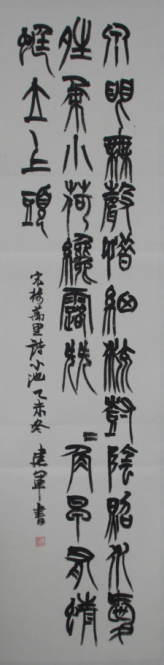 泉眼無聲惜細流樹陰照水愛
晴柔小荷纔露尖〻角早有蜻
蜓立上頭
宋楊萬里詩小池乙未冬建軍書